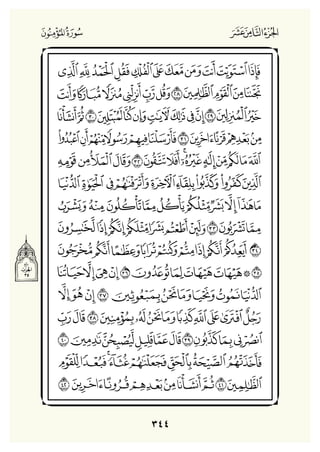 الجُزْءُ الثَّامِنَ عَشَرَ
سُورَةُ المُؤْمِنُونَ
فَإِذَا ٱسْتَوَيْتَ أَنتَ وَمَن مَّعَكَ عَلَى ٱلْفُلْكِ فَقُلِ ٱلْحَمْدُ لِلَّهِ ٱلَّذِى
نَجَّىٰنَا مِنَ ٱلْقَوْمِ ٱلظَّٰلِمِينَ ٢٨ وَقُل رَّبِّ أَنزِلْنِى مُنزَلًا مُّبَارَكًا وَأَنتَ
خَيْرُ ٱلْمُنزِلِينَ ٢٩ إِنَّ فِى ذَٰلِكَ لَـَٔايَٰتٍ وَإِن كُنَّا لَمُبْتَلِينَ ٣٠ ثُمَّ أَنشَأْنَا
مِنۢ بَعْدِهِمْ قَرْنًا ءَاخَرِينَ ٣١ فَأَرْسَلْنَا فِيهِمْ رَسُولًا مِّنْهُمْ أَنِ ٱعْبُدُوا۟
ٱللَّهَ مَا لَكُم مِّنْ إِلَٰهٍ غَيْرُهُۥٓ ۖ أَفَلَا تَتَّقُونَ ٣٢ وَقَالَ ٱلْمَلَأُ مِن قَوْمِهِ
ٱلَّذِينَ كَفَرُوا۟ وَكَذَّبُوا۟ بِلِقَآءِ ٱلْـَٔاخِرَةِ وَأَتْرَفْنَٰهُمْ فِى ٱلْحَيَوٰةِ ٱلدُّنْيَا
مَا هَٰذَآ إِلَّا بَشَرٌ مِّثْلُكُمْ يَأْكُلُ مِمَّا تَأْكُلُونَ مِنْهُ وَيَشْرَبُ
مِمَّا تَشْرَبُونَ ٣٣ وَلَئِنْ أَطَعْتُم بَشَرًا مِّثْلَكُمْ إِنَّكُمْ إِذًا لَّخَٰسِرُونَ
٣٤ أَيَعِدُكُمْ أَنَّكُمْ إِذَا مِتُّمْ وَكُنتُمْ تُرَابًا وَعِظَٰمًا أَنَّكُم مُّخْرَجُونَ
٣٥ ۞ هَيْهَاتَ هَيْهَاتَ لِمَا تُوعَدُونَ ٣٦ إِنْ هِىَ إِلَّا حَيَاتُنَا
ٱلدُّنْيَا نَمُوتُ وَنَحْيَا وَمَا نَحْنُ بِمَبْعُوثِينَ ٣٧ إِنْ هُوَ إِلَّا
رَجُلٌ ٱفْتَرَىٰ عَلَى ٱللَّهِ كَذِبًا وَمَا نَحْنُ لَهُۥ بِمُؤْمِنِينَ ٣٨ قَالَ رَبِّ
ٱنصُرْنِى بِمَا كَذَّبُونِ ٣٩ قَالَ عَمَّا قَلِيلٍ لَّيُصْبِحُنَّ نَٰدِمِينَ ٤٠
فَأَخَذَتْهُمُ ٱلصَّيْحَةُ بِٱلْحَقِّ فَجَعَلْنَٰهُمْ غُثَآءً ۚ فَبُعْدًا لِّلْقَوْمِ
ٱلظَّٰلِمِينَ ٤١ ثُمَّ أَنشَأْنَا مِنۢ بَعْدِهِمْ قُرُونًا ءَاخَرِينَ ٤٢
٣٤٤